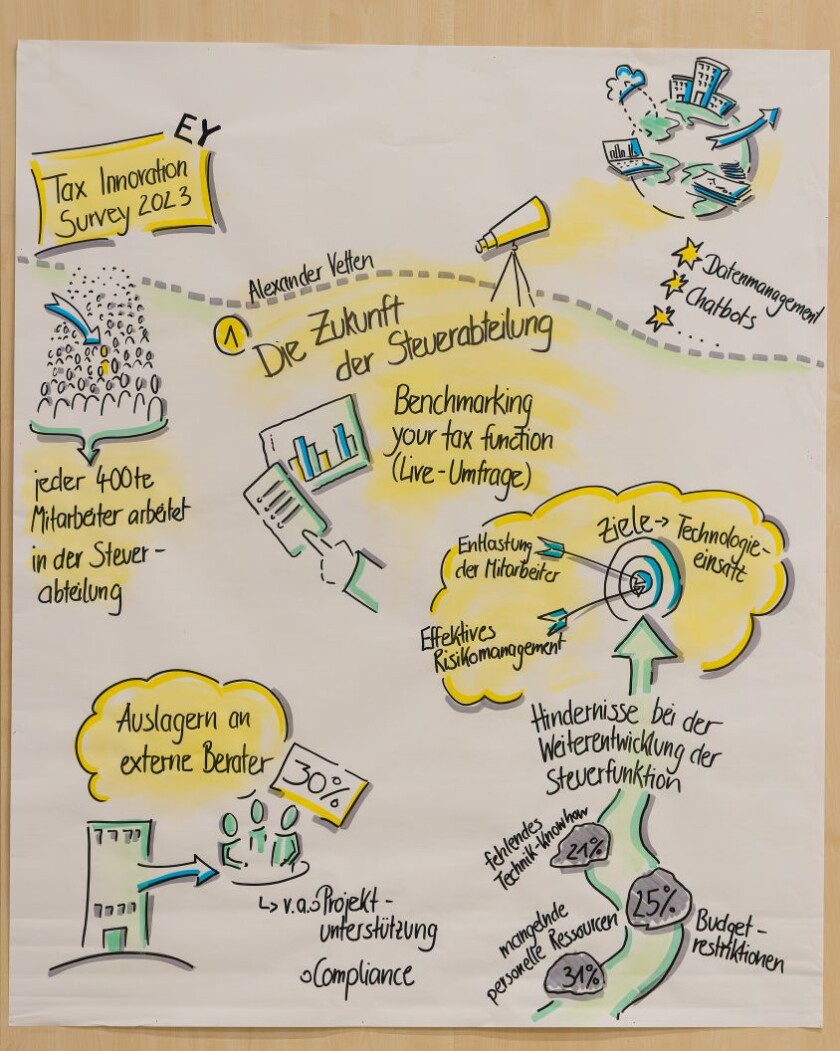 EY
Tax Innovation
Survey 2023
jeder 400te
Mitarbeiter arbeitet
in der Steuer-
abteilung
Alexander Vetten
1
Die Zukunft
der Steuerabteilung
Benchmarking
your tax function
(Live-Umfrage)
Datenmanagement
Chatbots
.....
Ziele → Technologie-
einsatz
Entlastung
der Mitarbeiter
Effektives
Risikomanagement
Hindernisse bei der
Weiterentwicklung der
Steuerfunktion
fehlendes
Technik-Knowhow
21%
25%
Budget-
restriktionen
mangelnde
personelle Ressourcen
31%
Auslagern an
externe Berater
30%
↳ v.a. Projekt-
unterstützung
Compliance